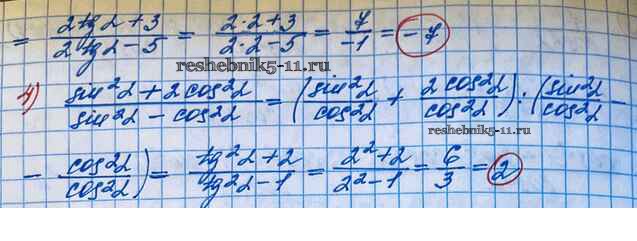 = (2tgα + 3)/(2tgα - 5) = (2·2+3)/(2·2-5) = 7/-1 = -7
reshebnik5-11.ru
4) (sin²α + 2cos²α)/(sin²α - cos²α) = (sin²α/cos²α + 2cos²α/cos²α) : (sin²α/cos²α -
reshebnik5-11.ru
- cos²α/cos²α) = (tg²α + 2)/(tg²α - 1) = (2²+2)/(2²-1) = 6/3 = 2